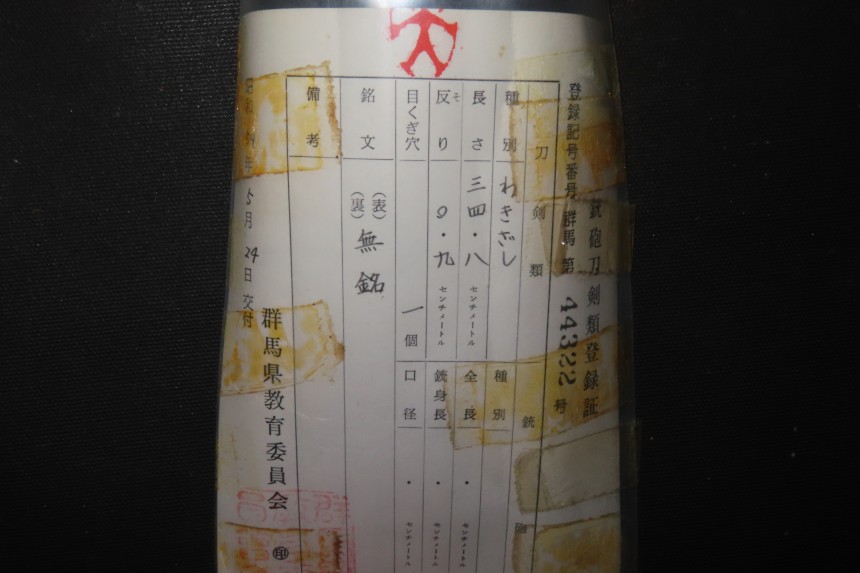 銃砲刀剣類登録証
登録記号番号 群馬 第 44322 号
刀剣類
種別 わきざし
長さ 三四・八 センチメートル
反り そ 〇・九 センチメートル
目くぎ穴 一個
銘文 (表) 無銘
(裏)
備考
銃砲
種別
全長 ・ センチメートル
銃身長 ・ センチメートル
口径 ・ センチメートル
昭和 年 5月 24日 交付
群馬県教育委員会 ㊞